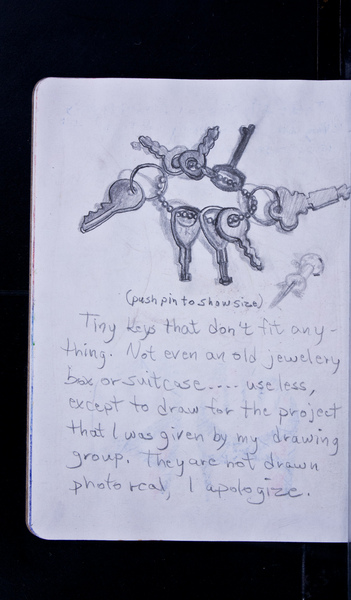 (push pin to show size)
Tiny keys that don't fit any-
thing. Not even an old jewelery
box or suitcase.... useless,
except to draw for the project
that I was given by my drawing
group. They are not drawn
photo real, I apologize.